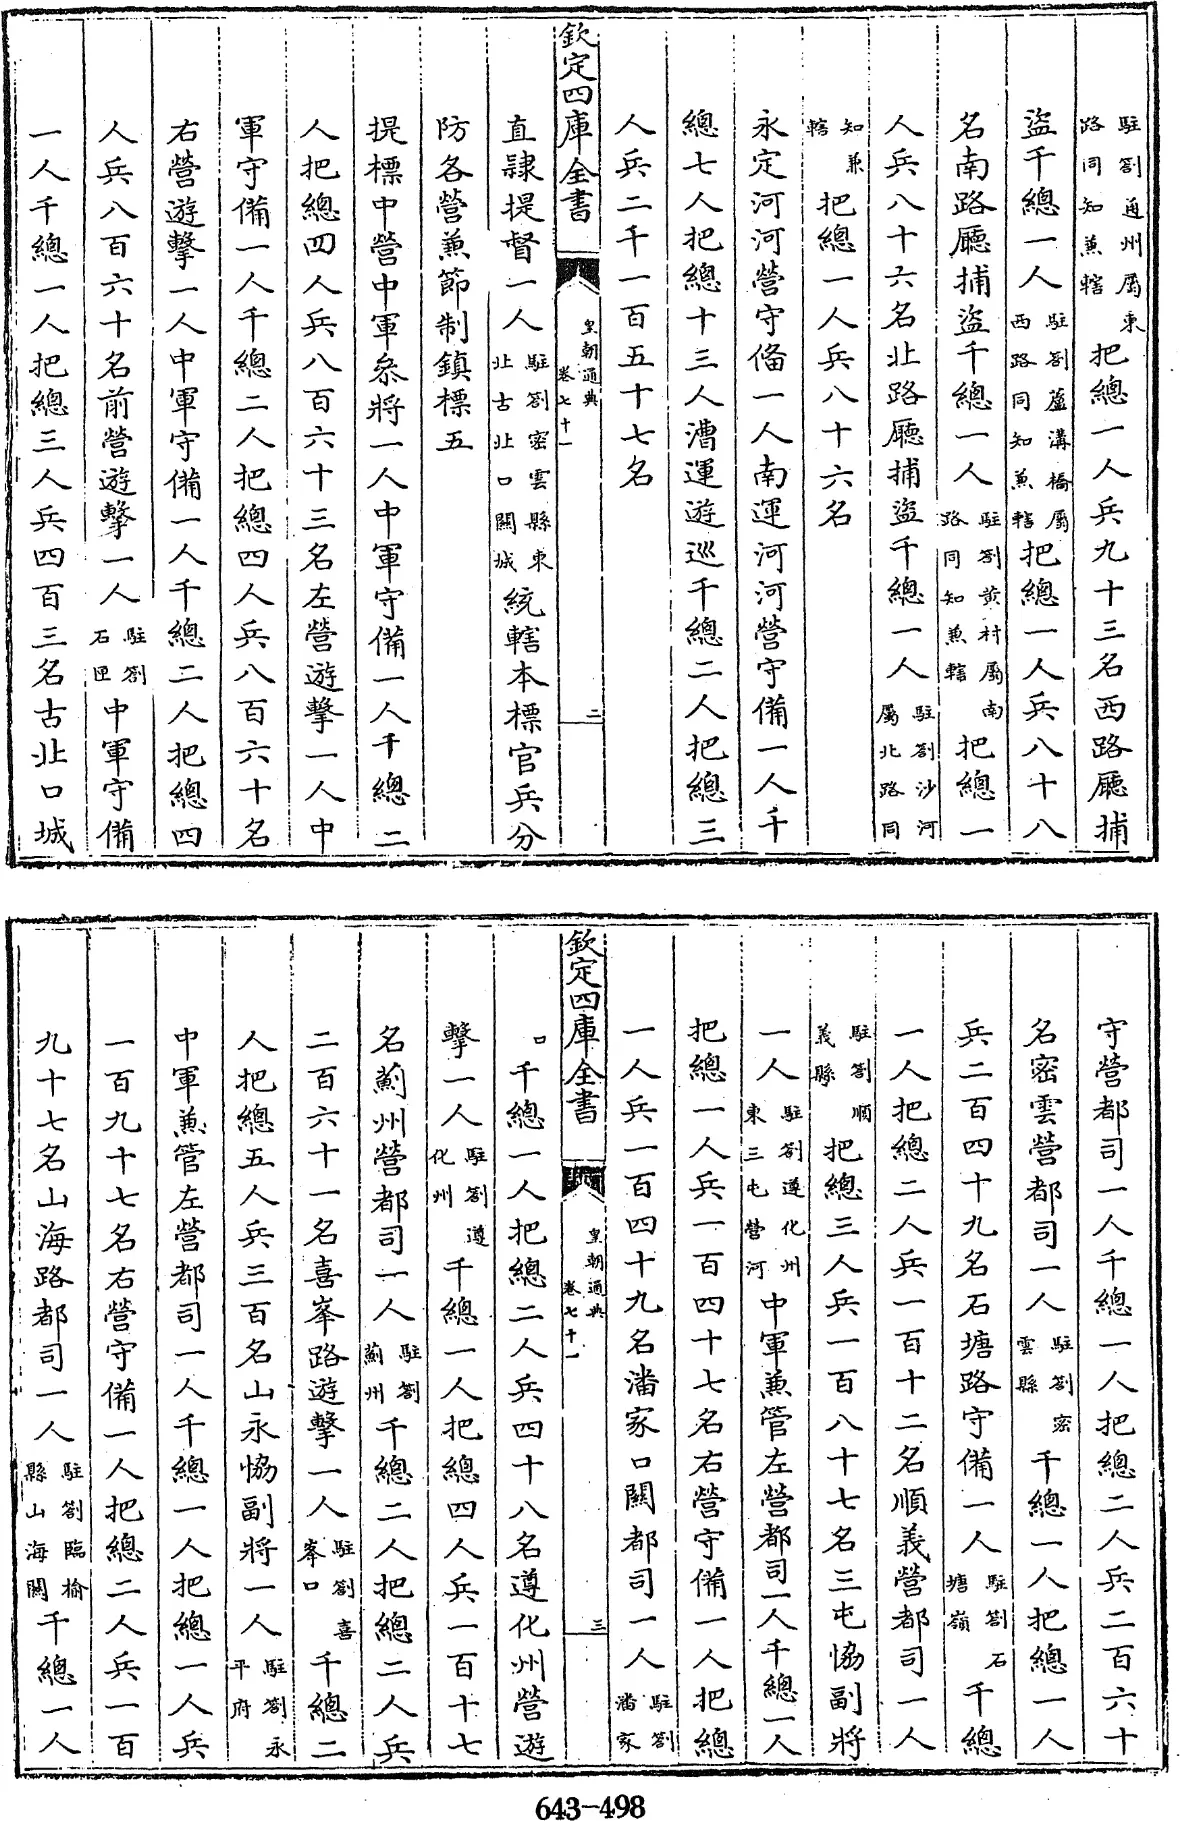 駐劄通州屬東路同知兼轄把總一人兵九十三名西路廳捕
盜千總一人駐劄蘆溝橋屬西路同知兼轄把總一人兵八十八
名南路廳捕盜千總一人駐劄黄村屬南路同知兼轄把總一
人兵八十六名北路廳捕盜千總一人駐劄沙河屬北路同
知兼轄把總一人兵八十六名
永定河河營守備一人南運河河營守備一人千
總七人把總十三人漕運遊巡千總二人把總三
人兵二千一百五十七名
欽定四庫全書
皇朝通典
卷七十一
二
直隸提督一人駐劄密雲縣東北古北口關城統轄本標官兵分
防各營兼節制鎮標五
提標中營中軍叅將一人中軍守備一人千總二
人把總四人兵八百六十三名左營遊擊一人中
軍守備一人千總二人把總四人兵八百六十名
右營遊擊一人中軍守備一人千總二人把總四
人兵八百六十名前營遊擊一人駐劄石匣中軍守備
一人千總一人把總三人兵四百三名古北口城
守營都司一人千總一人把總二人兵二百六十
名密雲營都司一人駐劄密雲縣千總一人把總一人
兵二百四十九名石塘路守備一人駐劄石塘嶺千總
一人把總二人兵一百十二名順義營都司一人
駐劄順義縣把總三人兵一百八十七名三屯協副將
一人駐劄遵化州東三屯營河中軍兼管左營都司一人千總一人
把總一人兵一百四十七名右營守備一人把總
一人兵一百四十九名潘家口關都司一人駐劄潘家
欽定四庫全書
皇朝通典
卷七十一
三
口千總一人把總二人兵四十八名遵化州營遊
擊一人駐劄遵化州千總一人把總四人兵一百十七
名薊州營都司一人駐劄薊州千總二人把總二人兵
二百六十一名喜峯路遊擊一人駐劄喜峯口千總二
人把總五人兵三百名山永協副將一人駐劄永平府
中軍兼管左營都司一人千總一人把總一人兵
一百九十七名右營守備一人把總二人兵一百
九十七名山海路都司一人駐劄臨榆縣山海關千總一人
643-498